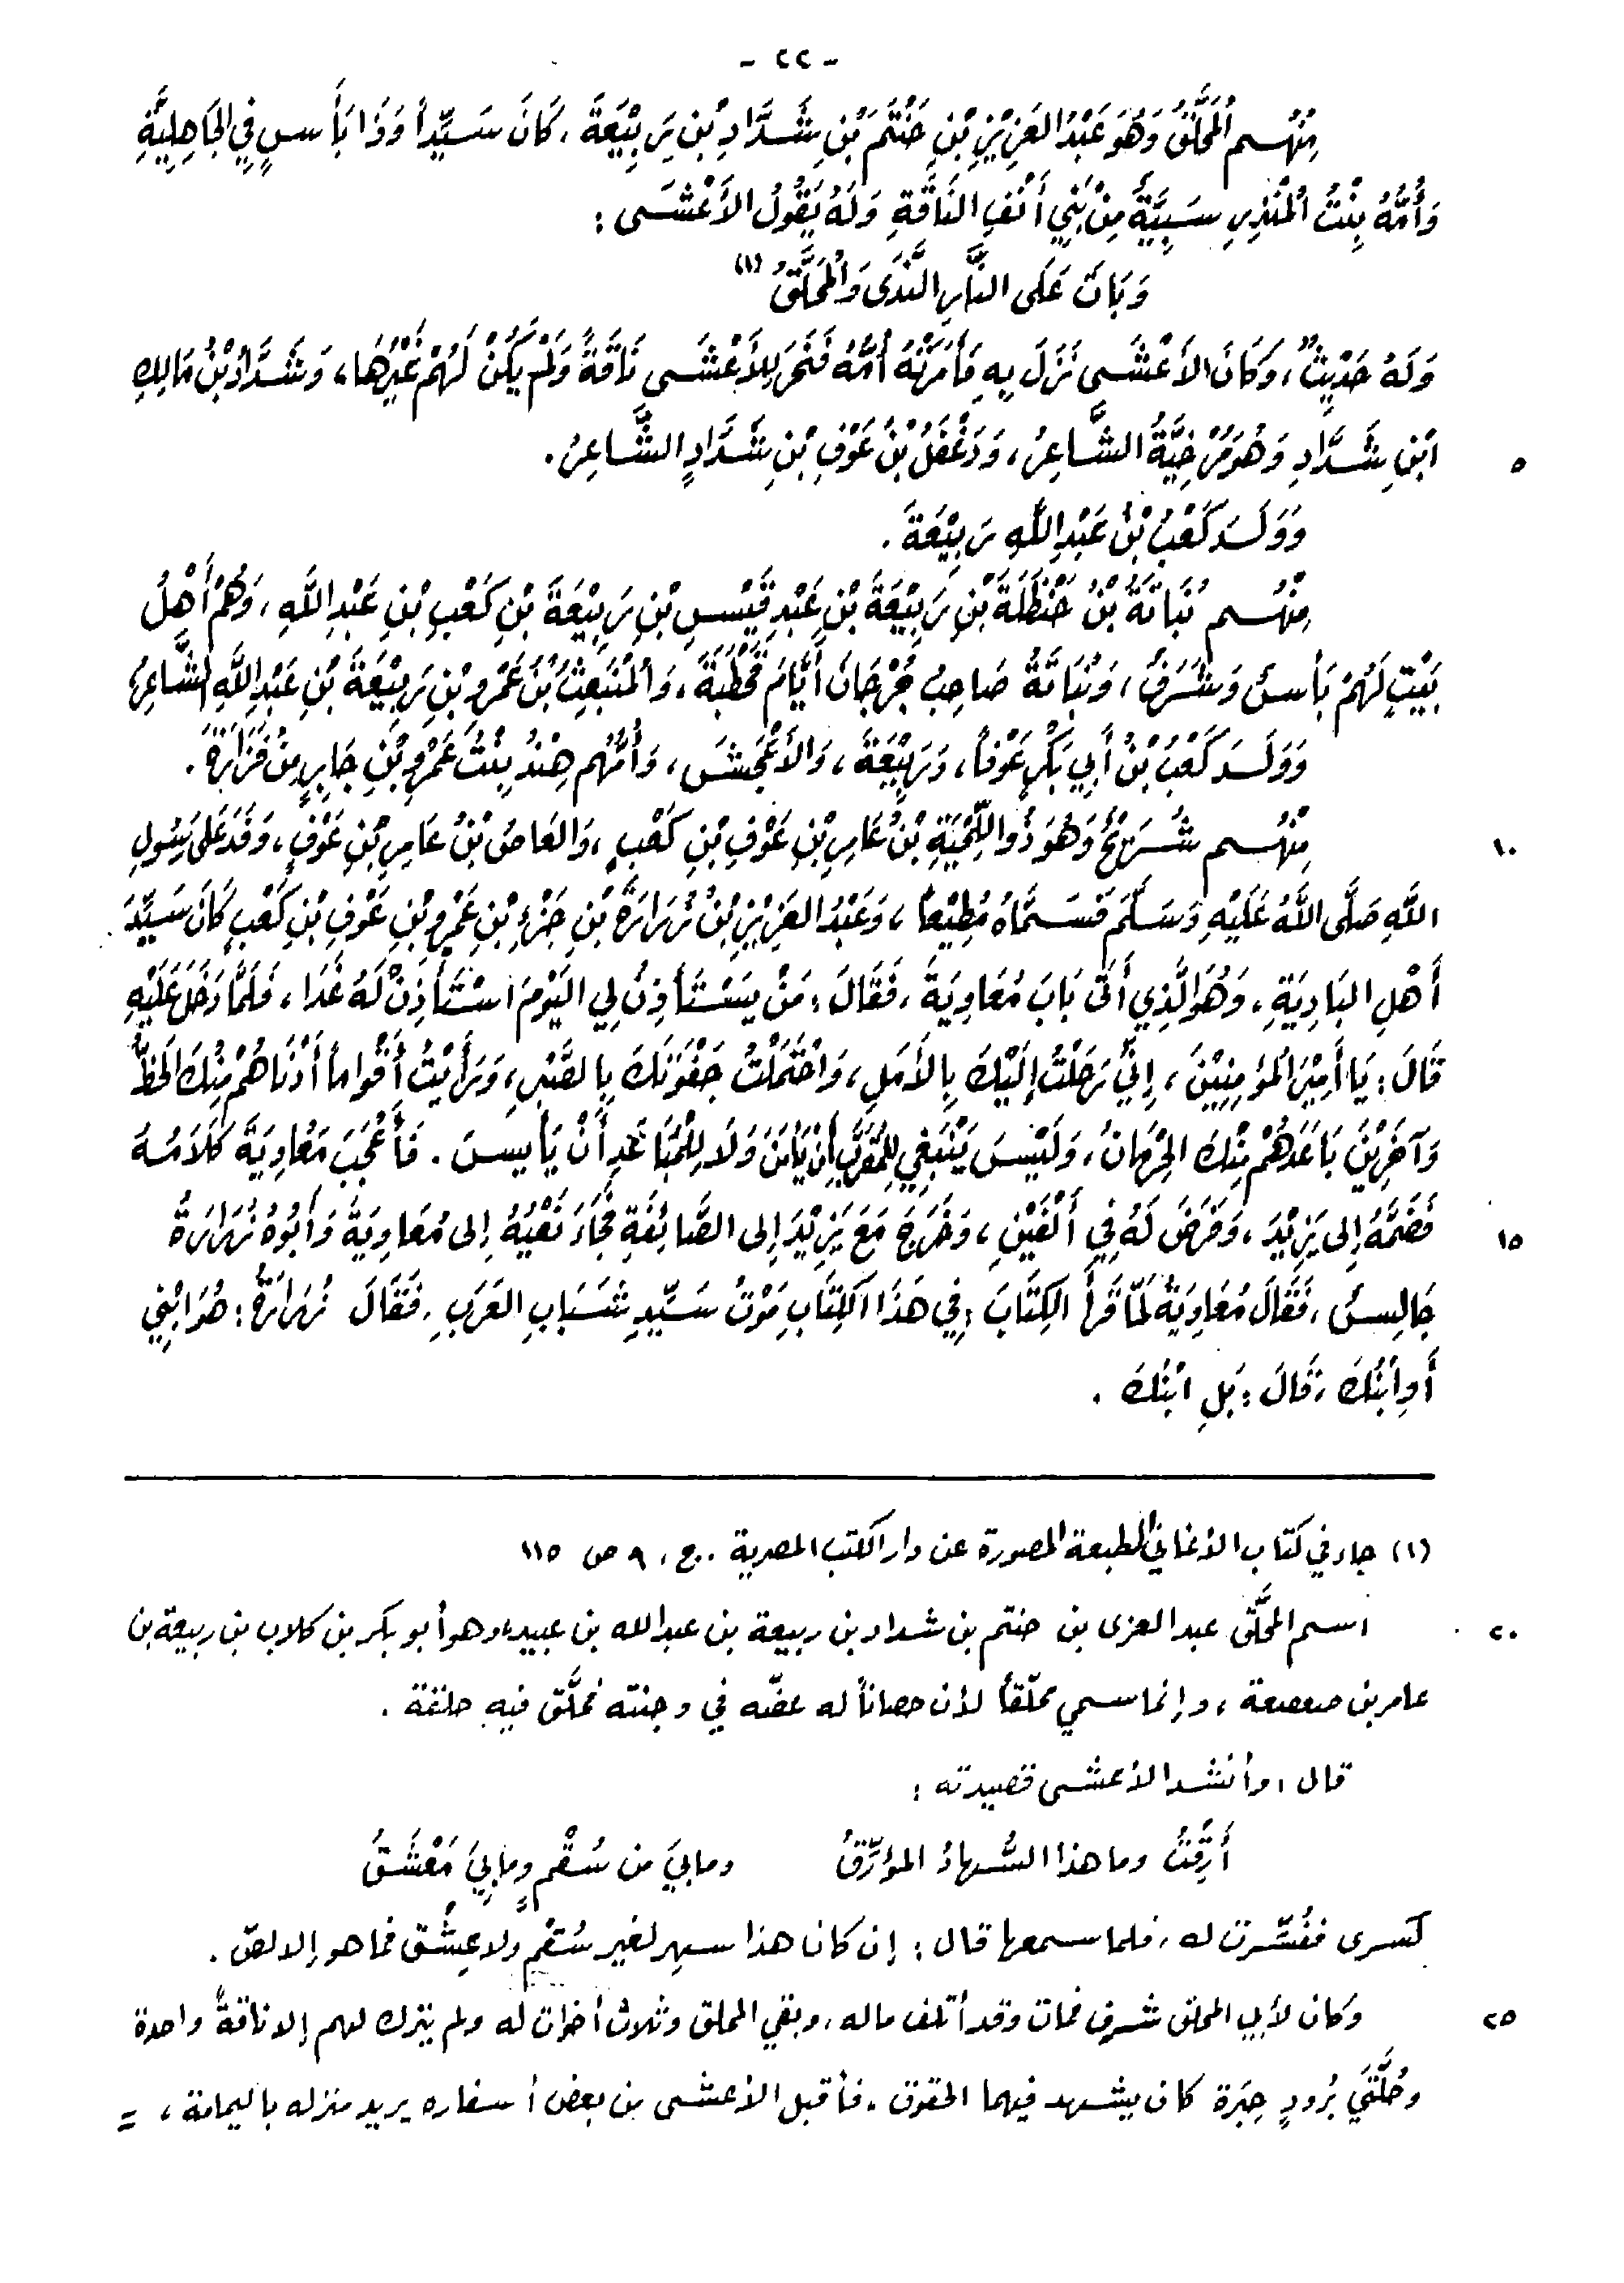 - ٢٢ -
مِنْهُم المُحَلَّقُ وَهُوَ عَبْدُ العَزِيْزِ بْنِ حَنْتَمَ بْنِ شَدَّادِ بْنِ رَبِيْعَةَ، كَانَ سَيِّداً وَذَا بَأْسٍ فِي الجَاهِلِيَّةِ
وَأُمُّهُ بِنْتُ المُنْذِرِ سَبِيَّةٌ مِنْ بَنِي أَنْفِ النَّاقَةِ وَلَهُ يَقُولُ الأَعْشَى :
وَبَاتَ عَلَى النَّارِ النَّدَى وَالمُحَلَّقُ (١)
وَلَهُ حَدِيْثٌ، وَكَانَ الأَعْشَى نَزَلَ بِهِ فَأَمَرَتْهُ أُمُّهُ فَنَحَرَ لِلأَعْشَى نَاقَةً وَلَمْ يَكُنْ لَهُمْ غَيْرُهَا، وَشَدَّادُ بْنُ مَالِكِ
٥ ابْنِ شَدَّادٍ وَهُوَ مُرْخِيَّةُ الشَّاعِرُ، وَدَغْفَلُ بْنُ عَوْفِ بْنِ شَدَّادٍ الشَّاعِرُ.
وَوَلَدَ كَعْبُ بْنُ عَبْدِ اللَّهِ رَبِيْعَةَ.
مِنْهُم نُبَاتَةُ بْنُ حَنْظَلَةَ بْنِ رَبِيْعَةَ بْنِ عَبْدِ قَيْسِ بْنِ رَبِيْعَةَ بْنِ كَعْبِ بْنِ عَبْدِ اللَّهِ، وَهُمْ أَهْلُ
بَيْتٍ لَهُمْ بَأْسٌ وَشَرَفٌ، وَنُبَاتَةُ صَاحِبُ جُرْجَانَ أَيَّامَ قَحْطَبَةَ، وَالمُنْبَعِثُ بْنُ عَمْرِو بْنِ رَبِيْعَةَ بْنِ عَبْدِ اللَّهِ الشَّاعِرُ
وَوَلَدَ كَعْبُ بْنُ أَبِي بَكْرٍ عَوْفاً، وَرَبِيْعَةَ، وَالأَعْجَشَ، وَأُمُّهُم هِنْدُ بِنْتُ عَمْرِو بْنِ جَابِرٍ مِنْ فَزَارَةَ.
١٠ مِنْهُم شُرَيْحُ وَهُوَ ذُو اللِّحْيَةِ بْنُ عَامِرِ بْنِ عَوْفِ بْنِ كَعْبٍ، وَالعَاصُ بْنُ عَامِرِ بْنِ عَوْفٍ، وَفَدَ عَلَى رَسُولِ
اللَّهِ صَلَّى اللَّهُ عَلَيْهِ وَسَلَّمَ فَسَمَّاهُ مُطِيْعاً، وَعَبْدُ العَزِيْزِ بْنُ زُرَارَةَ بْنِ جَزْءِ بْنِ عَمْرِو بْنِ عَوْفِ بْنِ كَعْبٍ كَانَ سَيِّدَ
أَهْلِ البَادِيَةِ، وَهُوَ الَّذِي أَتَى بَابَ مُعَاوِيَةَ، فَقَالَ: مَنْ يَسْتَأْذِنُ لِي اليَوْمَ اسْتَأْذِنْ لَهُ غَدَا، فَلَمَّا دَخَلَ عَلَيْهِ
قَالَ: يَا أَمِيْرَ المُؤْمِنِيْنَ، إِنِّي رَحَلْتُ إِلَيْكَ بِالأَمَلِ، وَاحْتَمَلْتُ جَفْوَتَكَ بِالصَّبْرِ، وَرَأَيْتُ أَقْوَاماً أَدْنَاهُمْ مِنْكَ الحَظُّ
وَآخَرِيْنَ بَاعَدَهُمْ مِنْكَ الحِرْمَانُ، وَلَيْسَ يَنْبَغِي لِلْمُقَرَّبِ أَنْ يَأْمَنَ وَلَا لِلْمُبَاعَدِ أَنْ يَأْيَسَ. فَأَعْجَبَ مُعَاوِيَةَ كَلَامُهُ
١٥ فَضَمَّهُ إِلَى يَزِيْدَ، وَفَرَضَ لَهُ فِي أَلْفَيْنِ، وَخَرَجَ مَعَ يَزِيْدَ إِلى الصَّائِفَةِ فَجَاءَ نَعْيُهُ إِلى مُعَاوِيَةَ وَأَبُوهُ زُرَارَةُ
جَالِسٌ، فَقَالَ مُعَاوِيَةُ لَمَّا قَرَأَ الكِتَابَ: فِي هَذَا الكِتَابِ مَوْتُ سَيِّدِ شَبَابِ العَرَبِ. فَقَالَ زُرَارَةُ: هُوَ ابْنِي
أَوِ ابْنُكَ، قَالَ: بَلِ ابْنُكَ.
(١) جاء في كتاب الأغاني الطبعة المصورة عن دار الكتب المصرية .ج، ٩ ص ١١٥
٢٠ اسم المحلَّق عبد العزى بن حنتم بن شداد بن ربيعة بن عبدالله بن عبيد، وهو أبو بكر بن كلاب بن ربيعة بن
عامر بن صعصعة، وإنما سمي محلّقاً لأن حصاناً له عضّه في وجنته فحلَّق فيه حلقة.
قال: وأنشد الأعشى قصيدته :
أَرِقْتُ وما هذا السُّهادُ المؤرِّقُ وما بيَ من سُقْمٍ وما بِيَ مَعْشَقُ
كسرى ففُسِّرت له، فلما سمعها قال: إن كان هذا سهر لغير سُقْمٍ ولا عِشْق فما هو إلا لصّ.
٢٥ وكان لأبي المحلق شرف فمات وقد أتلف ماله، وبقي المحلق وثلاث أخوات له ولم يترك لهم إلا ناقةً واحدة
وحُلَّتَي بُرودٍ حِبَرة كان يشهد فيهما الحقوق، فأقبل الأعشى من بعض أسفاره يريد منزله باليمامة، =